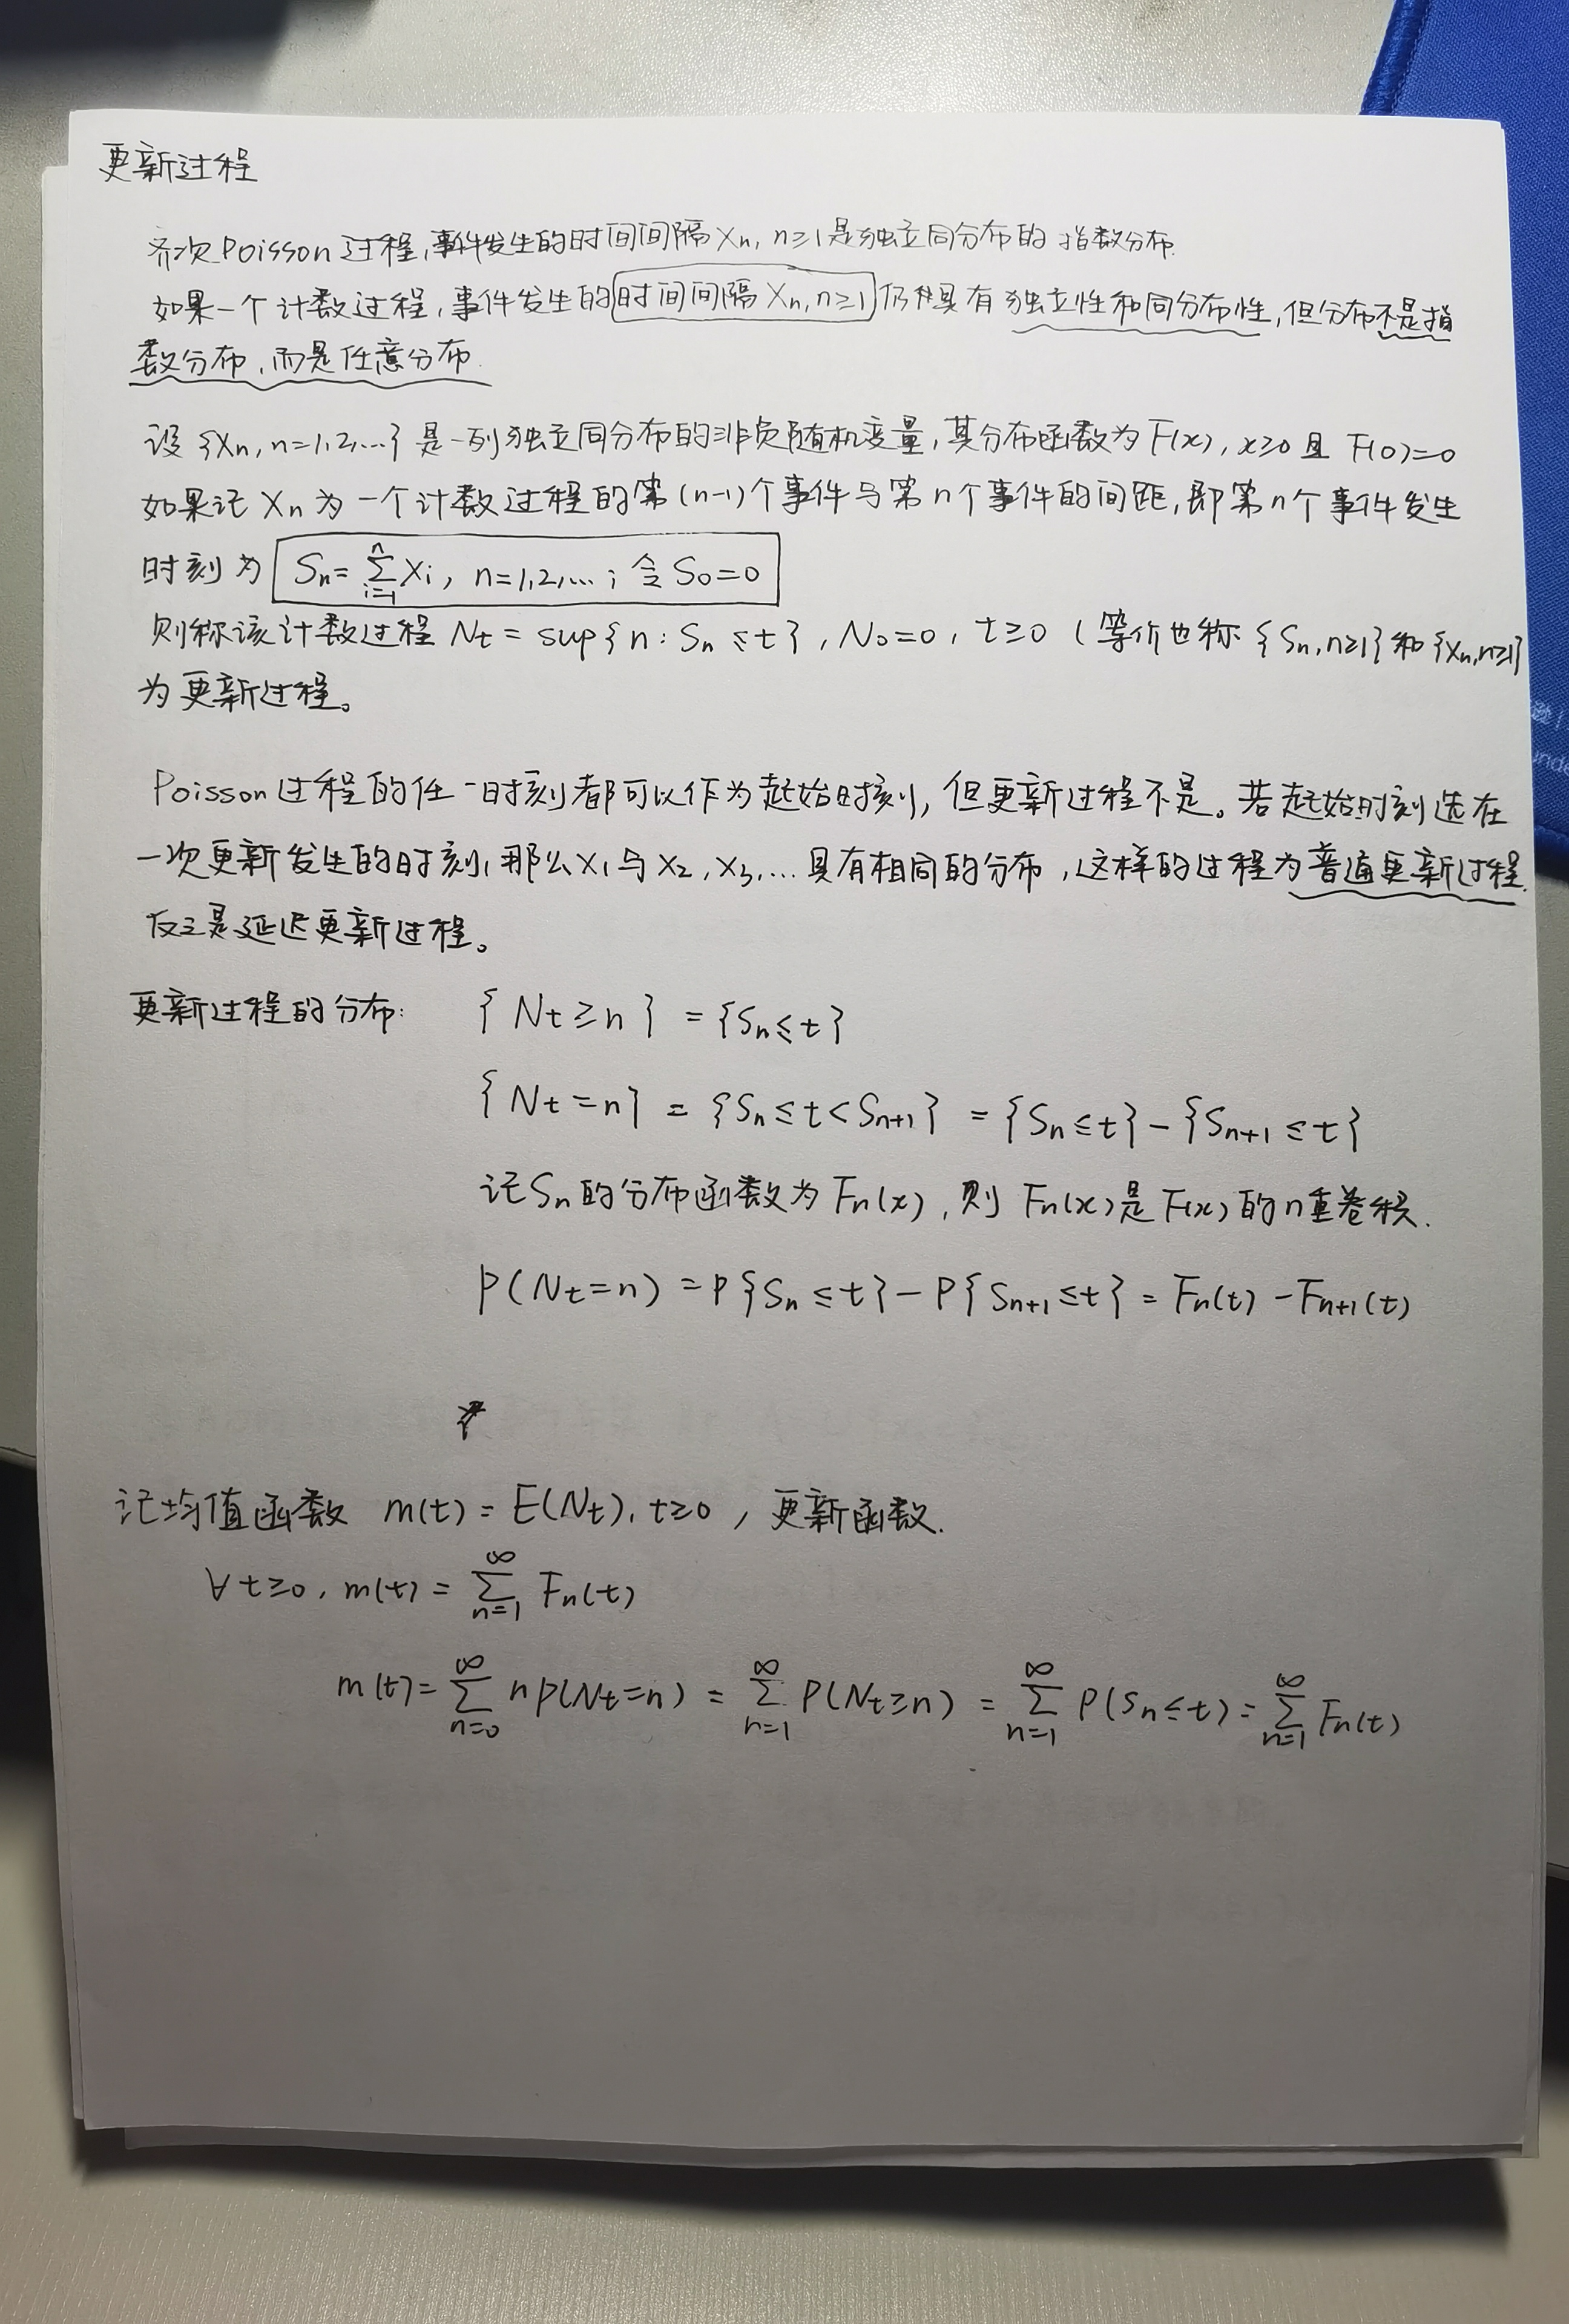 更新过程
齐次Poisson过程,事件发生的时间间隔Xn, n≥1是独立同分布的指数分布.
如果一个计数过程,事件发生的时间间隔Xn,n≥1仍具有独立性和同分布性,但分布不是指
数分布,而是任意分布.
设{Xn, n=1,2,...}是一列独立同分布的非负随机变量,其分布函数为F(x), x≥0且F(0)=0
如果记Xn为一个计数过程的第(n-1)个事件与第n个事件的间距,即第n个事件发生
时刻为 Sn=∑_{i=1}^{n} Xi, n=1,2,...; 令S0=0
则称该计数过程Nt=sup{n: Sn≤t}, N0=0, t≥0 (等价也称{Sn,n≥1}和{Xn,n≥1}
为更新过程。
Poisson过程的任一时刻都可以作为起始时刻,但更新过程不是。若起始时刻选在
一次更新发生的时刻,那么X1与X2,X3,...具有相同的分布,这样的过程为普遍更新过程.
反之是延迟更新过程。
更新过程的分布: {Nt≥n} = {Sn≤t}
{Nt=n} = {Sn≤t<Sn+1} = {Sn≤t}-{Sn+1≤t}
记Sn的分布函数为Fn(x),则Fn(x)是F(x)的n重卷积.
P(Nt=n) = P{Sn≤t}-P{Sn+1≤t} = Fn(t)-Fn+1(t)
记均值函数 m(t)=E(Nt), t≥0, 更新函数.
∀t≥0, m(t)=∑_{n=1}^{∞} Fn(t)
m(t)=∑_{n=0}^{∞} nP(Nt=n) = ∑_{n=1}^{∞} P(Nt≥n) = ∑_{n=1}^{∞} P(Sn≤t) = ∑_{n=1}^{∞} Fn(t)